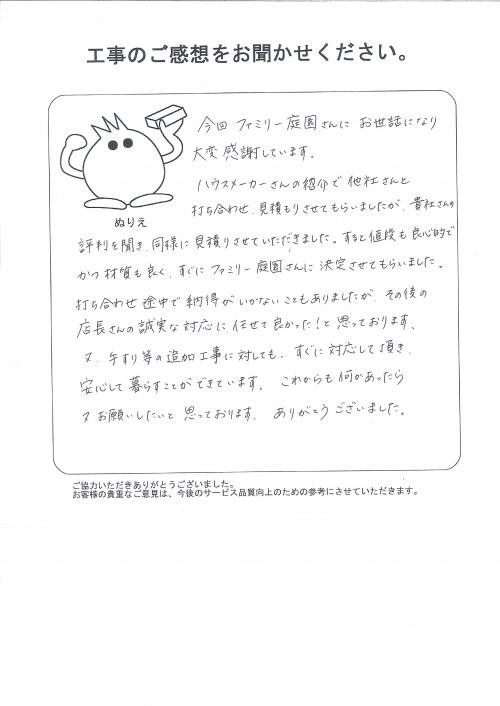 工事のご感想をお聞かせください。
今回 ファミリー庭園さんに お世話になり
大変 感謝しています。
ハウスメーカーさんの紹介で 他社さんと
打ち合わせ、見積もりさせてもらいましたが、貴社さんの
ぬりえ
評判を聞き、同様に見積りさせていただきました。すると値段も良心的で
かつ 材質も良く、すぐに ファミリー庭園さんに 決定させてもらいました。
打ち合わせ 途中で 納得がいかないこともありましたが、その後の
店長さんの誠実な対応に 任せて良かった!と 思っております。
又、手すり等の追加工事に対しても、すぐに対応して頂き、
安心して暮らすことができています。 これからも 何かあったら
又 お願いしたいと 思っております。 ありがとうございました。
ご協力いただきありがとうございました。
お客様の貴重なご意見は、今後のサービス品質向上のための参考にさせていただきます。